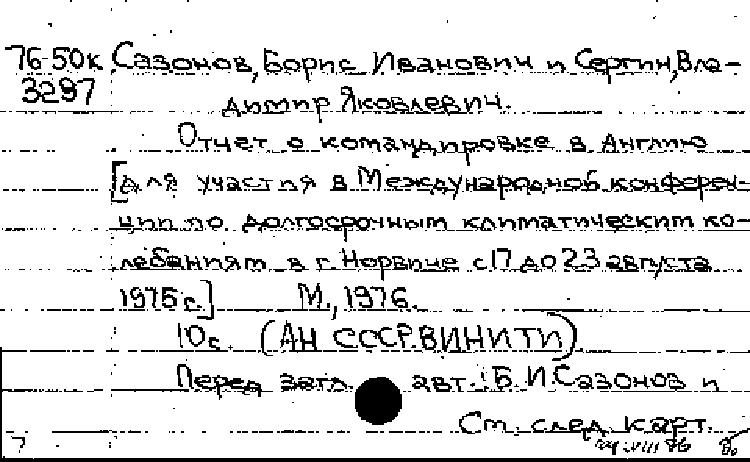 76-50к Сазонов, Борис Иванович и Сергин, Вла-
3297 димир Яковлевич.
Отчет о командировке в Англию
[для участия в Международной конферен-
ции по долгосрочным климатическим ко-
лебаниям в г. Норвиче с 17 до 23 августа
1975 г.] М., 1976.
10 с. (АН СССР. ВИНИТИ)
Перед загл. авт.: Б. И. Сазонов и
См. след. карт.
7 VIII 76